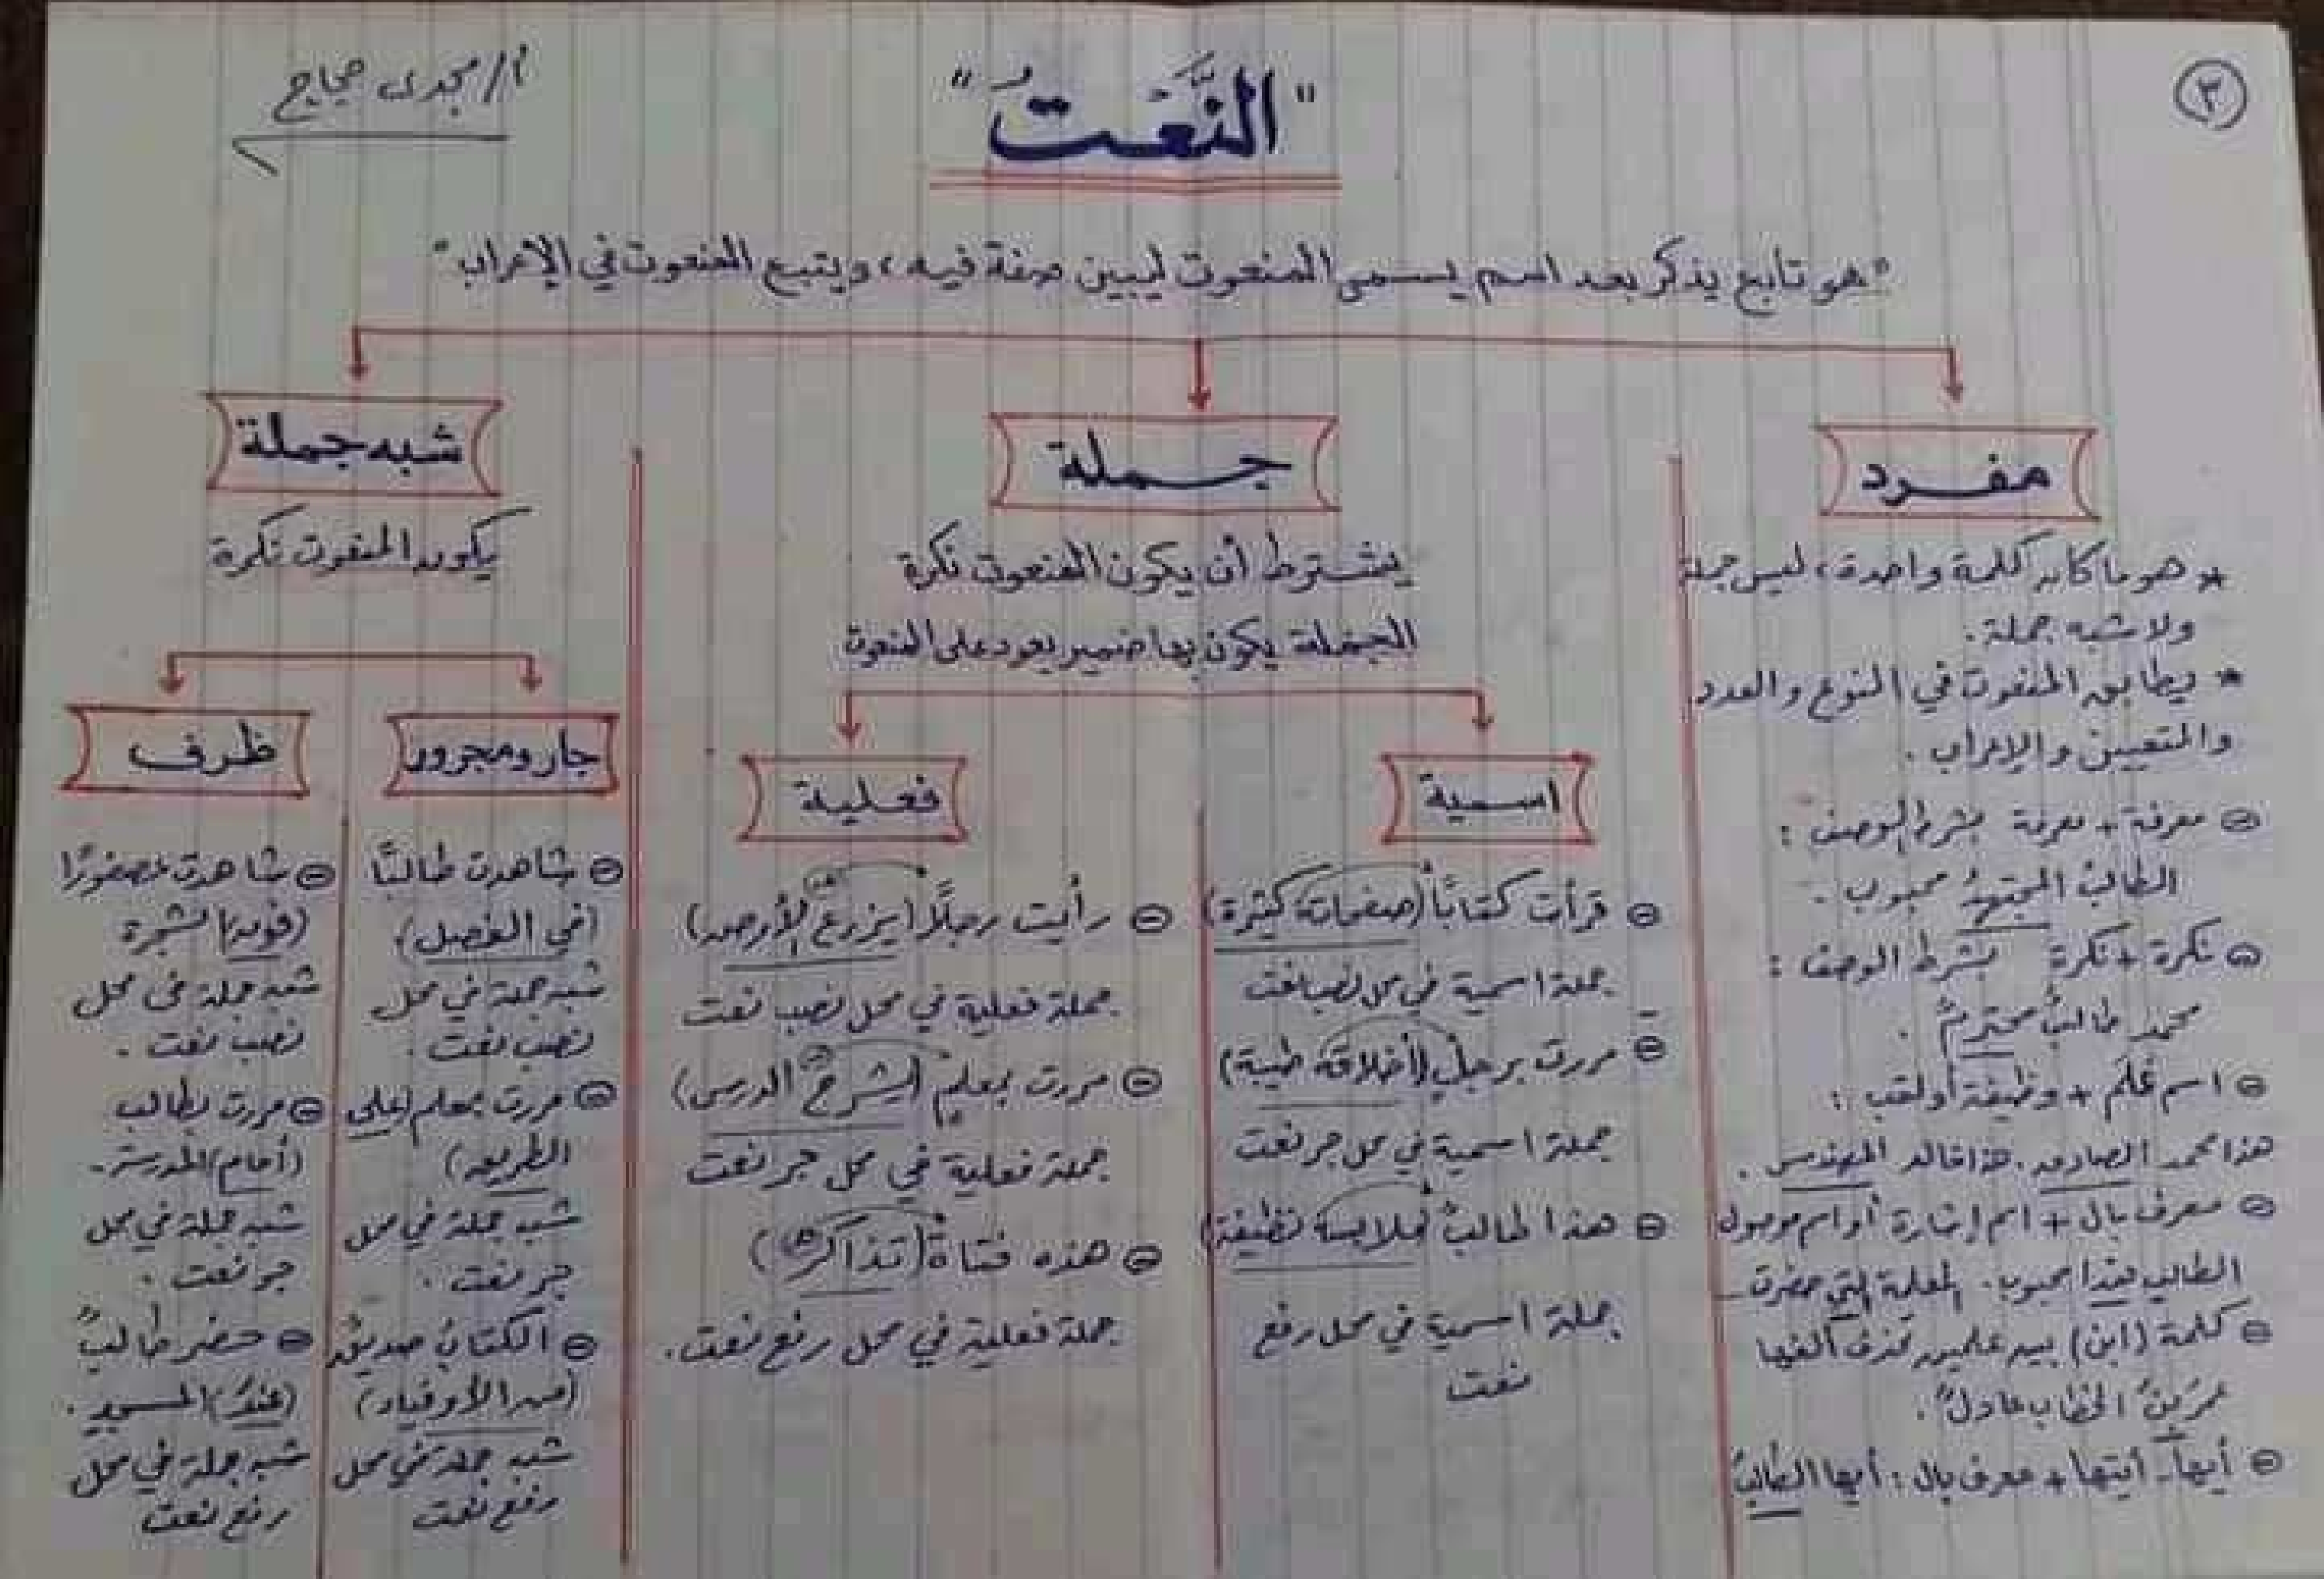 ٣
"النَّعْتُ"
أ/مجدى حجاج
"هو تابع يذكر بعد اسم يسمى المنعوت ليبين صفة فيه، ويتبع المنعوت في الإعراب"
مفرد
* هو ما كان كلمة واحدة، ليس جملة
ولا شبه جملة.
* يطابق المنعوت في النوع والعدد
والتعيين والإعراب.
معرفة + معرفة بشرط الوصف:
الطالبُ المجتهدُ محبوب.
نكرة + نكرة بشرط الوصف:
محمد طالبٌ محترمٌ.
اسم عَلَم + وظيفة أو لقب:
هذا محمد الصادق. هذا خالد المهندس.
معرف بال + اسم إشارة أو اسم موصول
الطالب هذا محبوب. المعلمة التي حضرت
كلمة (ابن) بين علمين تحذف ألفها
عمر بنُ الخطاب عادلٌ.
أيها - أيتها + معرف بال: أيها الطالبُ
جملة
يشترط أن يكون المنعوت نكرة
الجملة يكون بها ضمير يعود على المنعوت
اسمية
قرأت كتابًا (صفحاته كثيرة)
جملة اسمية في محل نصب نعت
مررت برجلٍ (أخلاقه طيبة)
جملة اسمية في محل جر نعت
هذا طالبٌ (ملابسه نظيفة)
جملة اسمية في محل رفع
نعت
فعلية
رأيت رجلًا (يزرعُ الأرض)
جملة فعلية في محل نصب نعت
مررت بمعلمٍ (يشرحُ الدرس)
جملة فعلية في محل جر نعت
هذه فتاةٌ (تذاكر)
جملة فعلية في محل رفع نعت.
شبه جملة
يكون المنعوت نكرة
جار ومجرور
شاهدت طالبًا
(في الفصل)
شبه جملة في محل
نصب نعت.
مررت بمعلم (على
الطريق)
شبه جملة في محل
جر نعت.
الكتابُ صديقٌ
(من الأوفياء)
شبه جملة في محل
رفع نعت
ظرف
شاهدت عصفورًا
(فوق) الشجرة
شبه جملة في محل
نصب نعت.
مررت بطالب
(أمام) المدرسة.
شبه جملة في محل
جر نعت.
حضر طالبٌ
(عندَ) المسجد.
شبه جملة في محل
رفع نعت